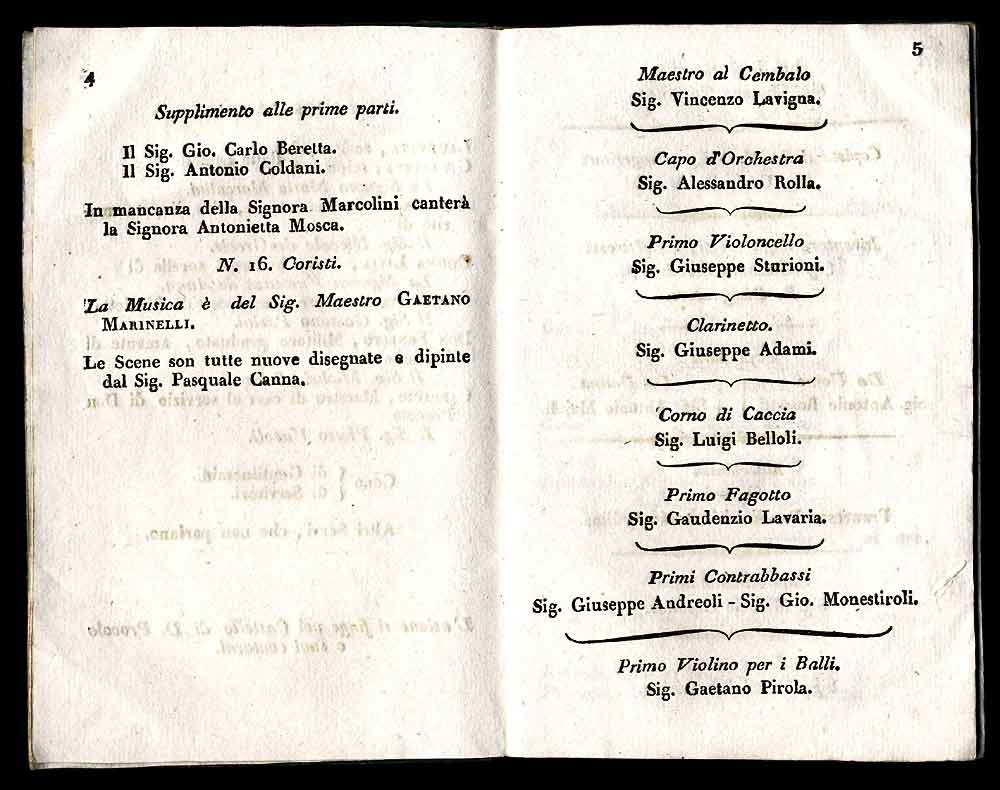 4
Supplimento alle prime parti.
Il Sig. Gio. Carlo Beretta.
Il Sig. Antonio Coldani.
In mancanza della Signora Marcolini canterà
la Signora Antonietta Mosca.
N. 16. Coristi.
La Musica è del Sig. Maestro GAETANO
MARINELLI.
Le Scene son tutte nuove disegnate e dipinte
dal Sig. Pasquale Canna.
5
Maestro al Cembalo
Sig. Vincenzo Lavigna.
Capo d'Orchestra
Sig. Alessandro Rolla.
Primo Violoncello
Sig. Giuseppe Sturioni.
Clarinetto.
Sig. Giuseppe Adami.
Corno di Caccia
Sig. Luigi Belloli.
Primo Fagotto
Sig. Gaudenzio Lavaria.
Primi Contrabbassi
Sig. Giuseppe Andreoli - Sig. Gio. Monestiroli.
Primo Violino per i Balli.
Sig. Gaetano Pirola.